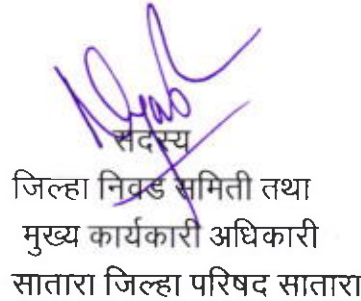 सदस्य
जिल्हा निवड समिती तथा
मुख्य कार्यकारी अधिकारी
सातारा जिल्हा परिषद सातारा